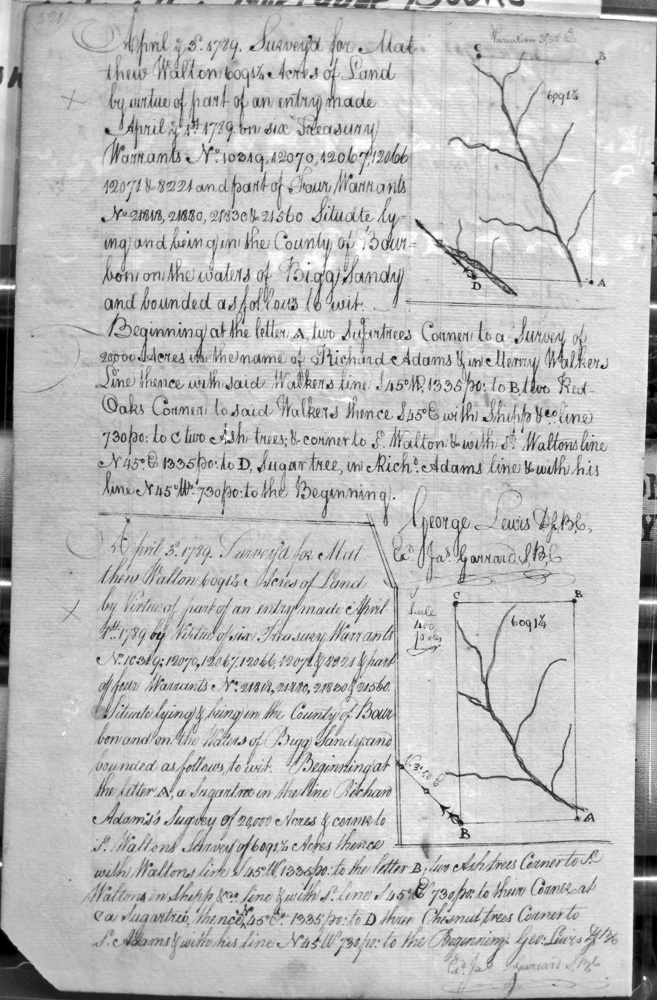 321
April ye 3d. 1789. Survey'd for Mat
thew Walton 6091¼ Acres of Land
by virtue of part of an entry made
April ye 1st 1789 on six Treasury
Warrants No. 10319, 12070, 12067, 12066
12071 & 8221 and part of Four Warrants
No. 21818, 21880, 21830 & 21560 Situate ly-
ing and being in the County of Bour=
bon on the waters of Bigg Sandy
and bounded as follows to wit.
Variation 3°50 E
C B
6091¼
D A
Beginning at the letter A, two Sugartrees Corner to a Survey of
20000 Acres in the name of Richard Adams & in Merry Walkers
Line thence with said Walkers line S 45° W, 1335 po: to B, two Red-
Oaks Corner to said Walkers thence S 45° E with Shipp & co. line
730 po: to C two Ash trees, & corner to Sd. Walton & with Sd. Waltons line
N 45° E 1335 po: to D, Sugartree, in Richd. Adams line & with his
line N 45° W. 730 po: to the Beginning.
George Lewis D.S.B.C.
Exd. Jas. Garrard S.B.C
April 3d. 1789. Survey'd for Mat
thew Walton 6091¼ Acres of Land
by Virtue of part of an entry made April
1st. 1789 by Virtue of six Treasury Warrants
No. 10319, 12070, 12067, 12066, 12071 & 8221 & part
of four Warrants No. 21818, 21880, 21830 & 21560.
Situate lying & being in the County of Bour
bon and on the Waters of Bigg Sandy and
bounded as follows, to wit. Beginning at
the letter A, a Sugartree in the line Richard
Adams's Survey of 20,000 Acres & corner to
Sd. Waltons Survey of 6091¼ Acres thence
Scale
400
poles
C B
6091¼
N. 3°50 E
B A
with Waltons line S 45° W 1335 po: to the letter B, two Ash trees Corner to Sd.
Waltons in Shipp & co. line & with Sd. line S 45° E 730 po: to their Corner at
C a Sugartree, thence N 45° E. 1335 po: to D three Chesnut trees Corner to
Sd. Adams & with his line N 45 W 730 po: to the Beginning. Geo: Lewis D.S.B.C
Exd. Jas. Garrard S.B.C